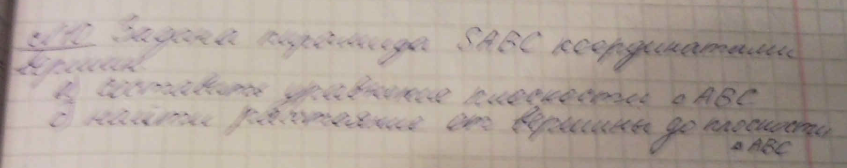 №10 Задана пирамида SABC координатами
вершин
а) составить уравнение плоскости ▵ ABC
б) найти расстояние от вершины до плоскости
▵ ABC